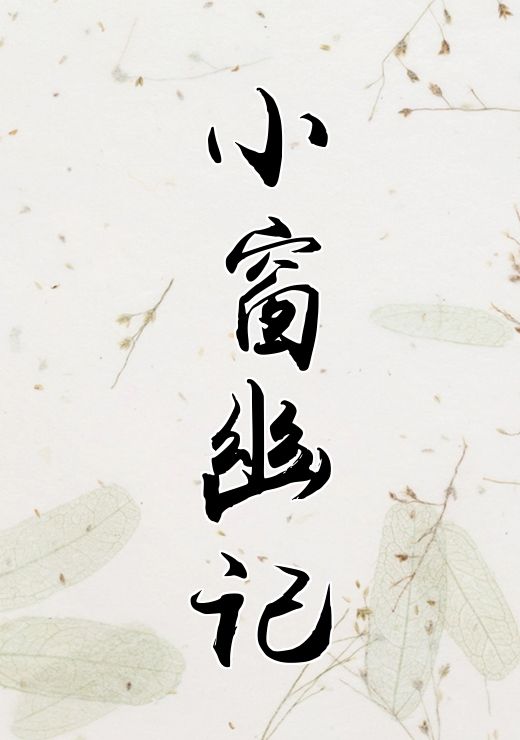 小窗幽记